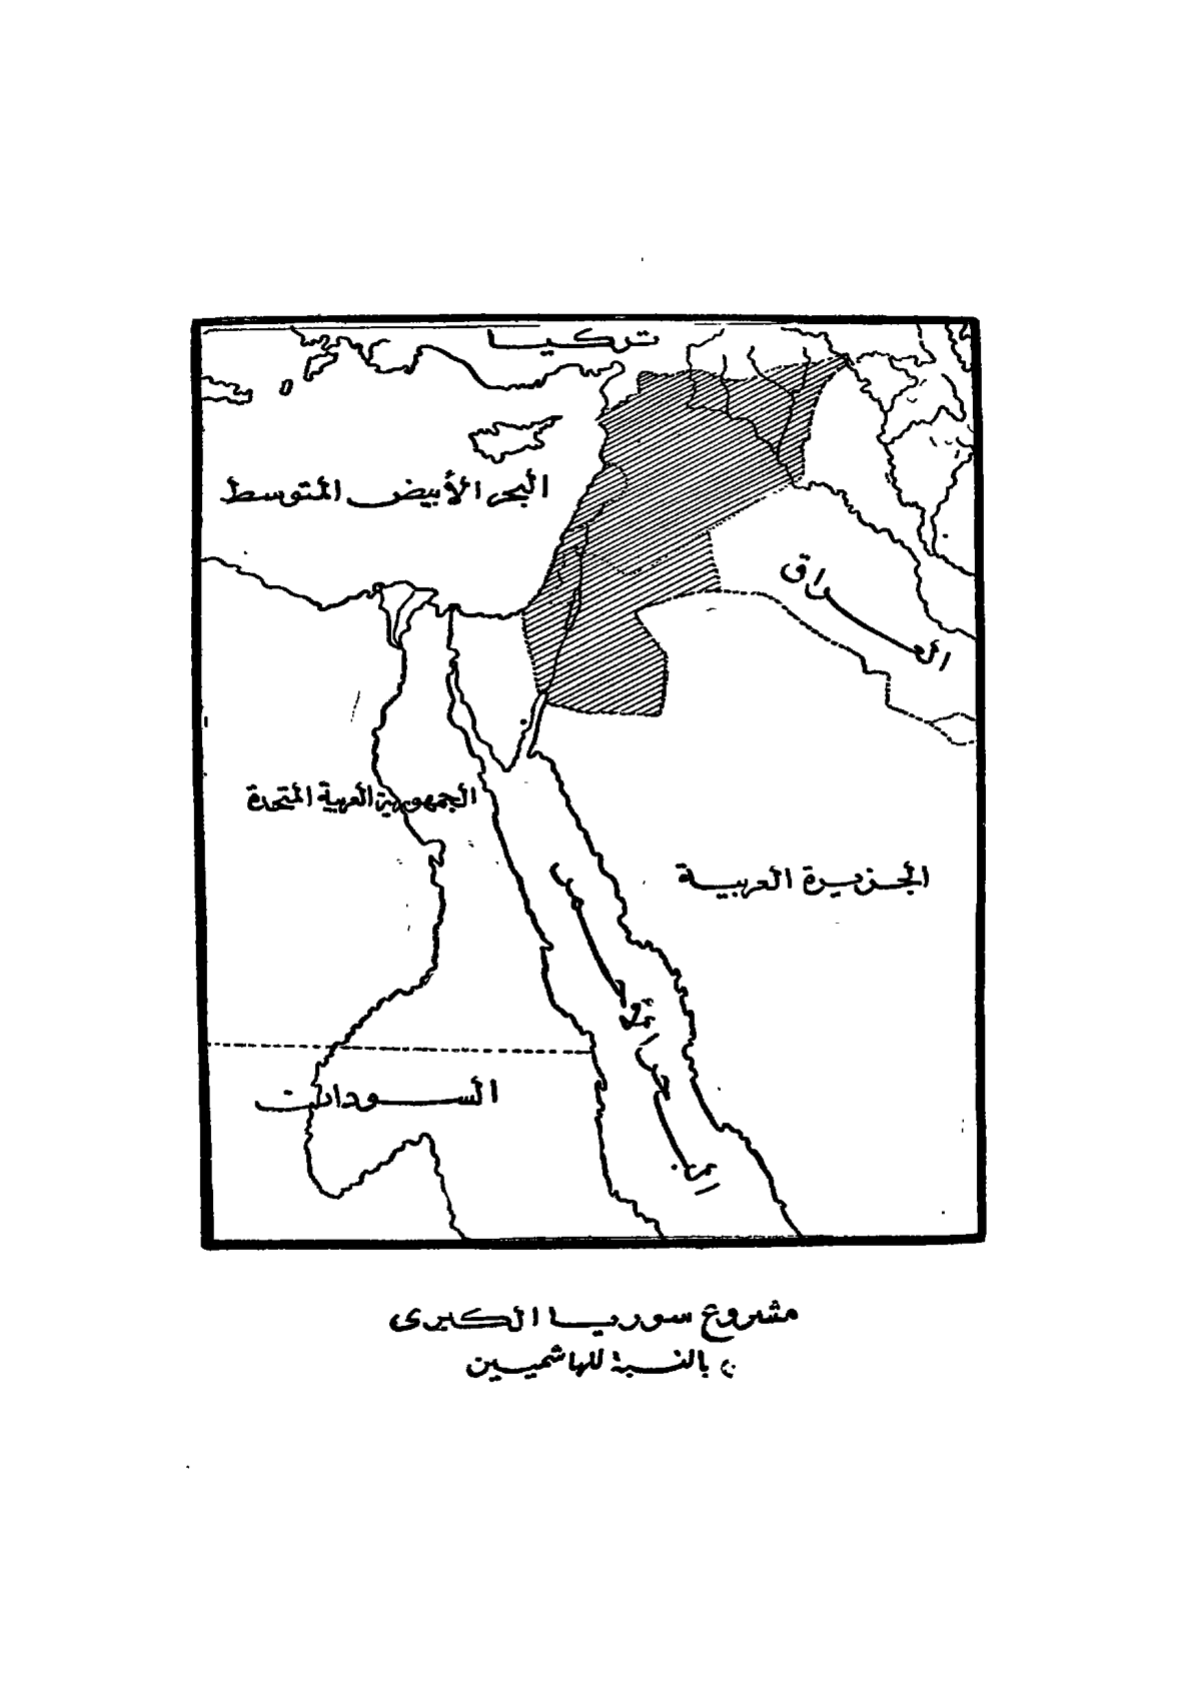 تركيا
البحر الأبيض المتوسط
العراق
الجمهورية العربية المتحدة
الجزيرة العربية
البحر الأحمر
السودان
مشروع سوريا الكبرى
بالنسبة للهاشميين